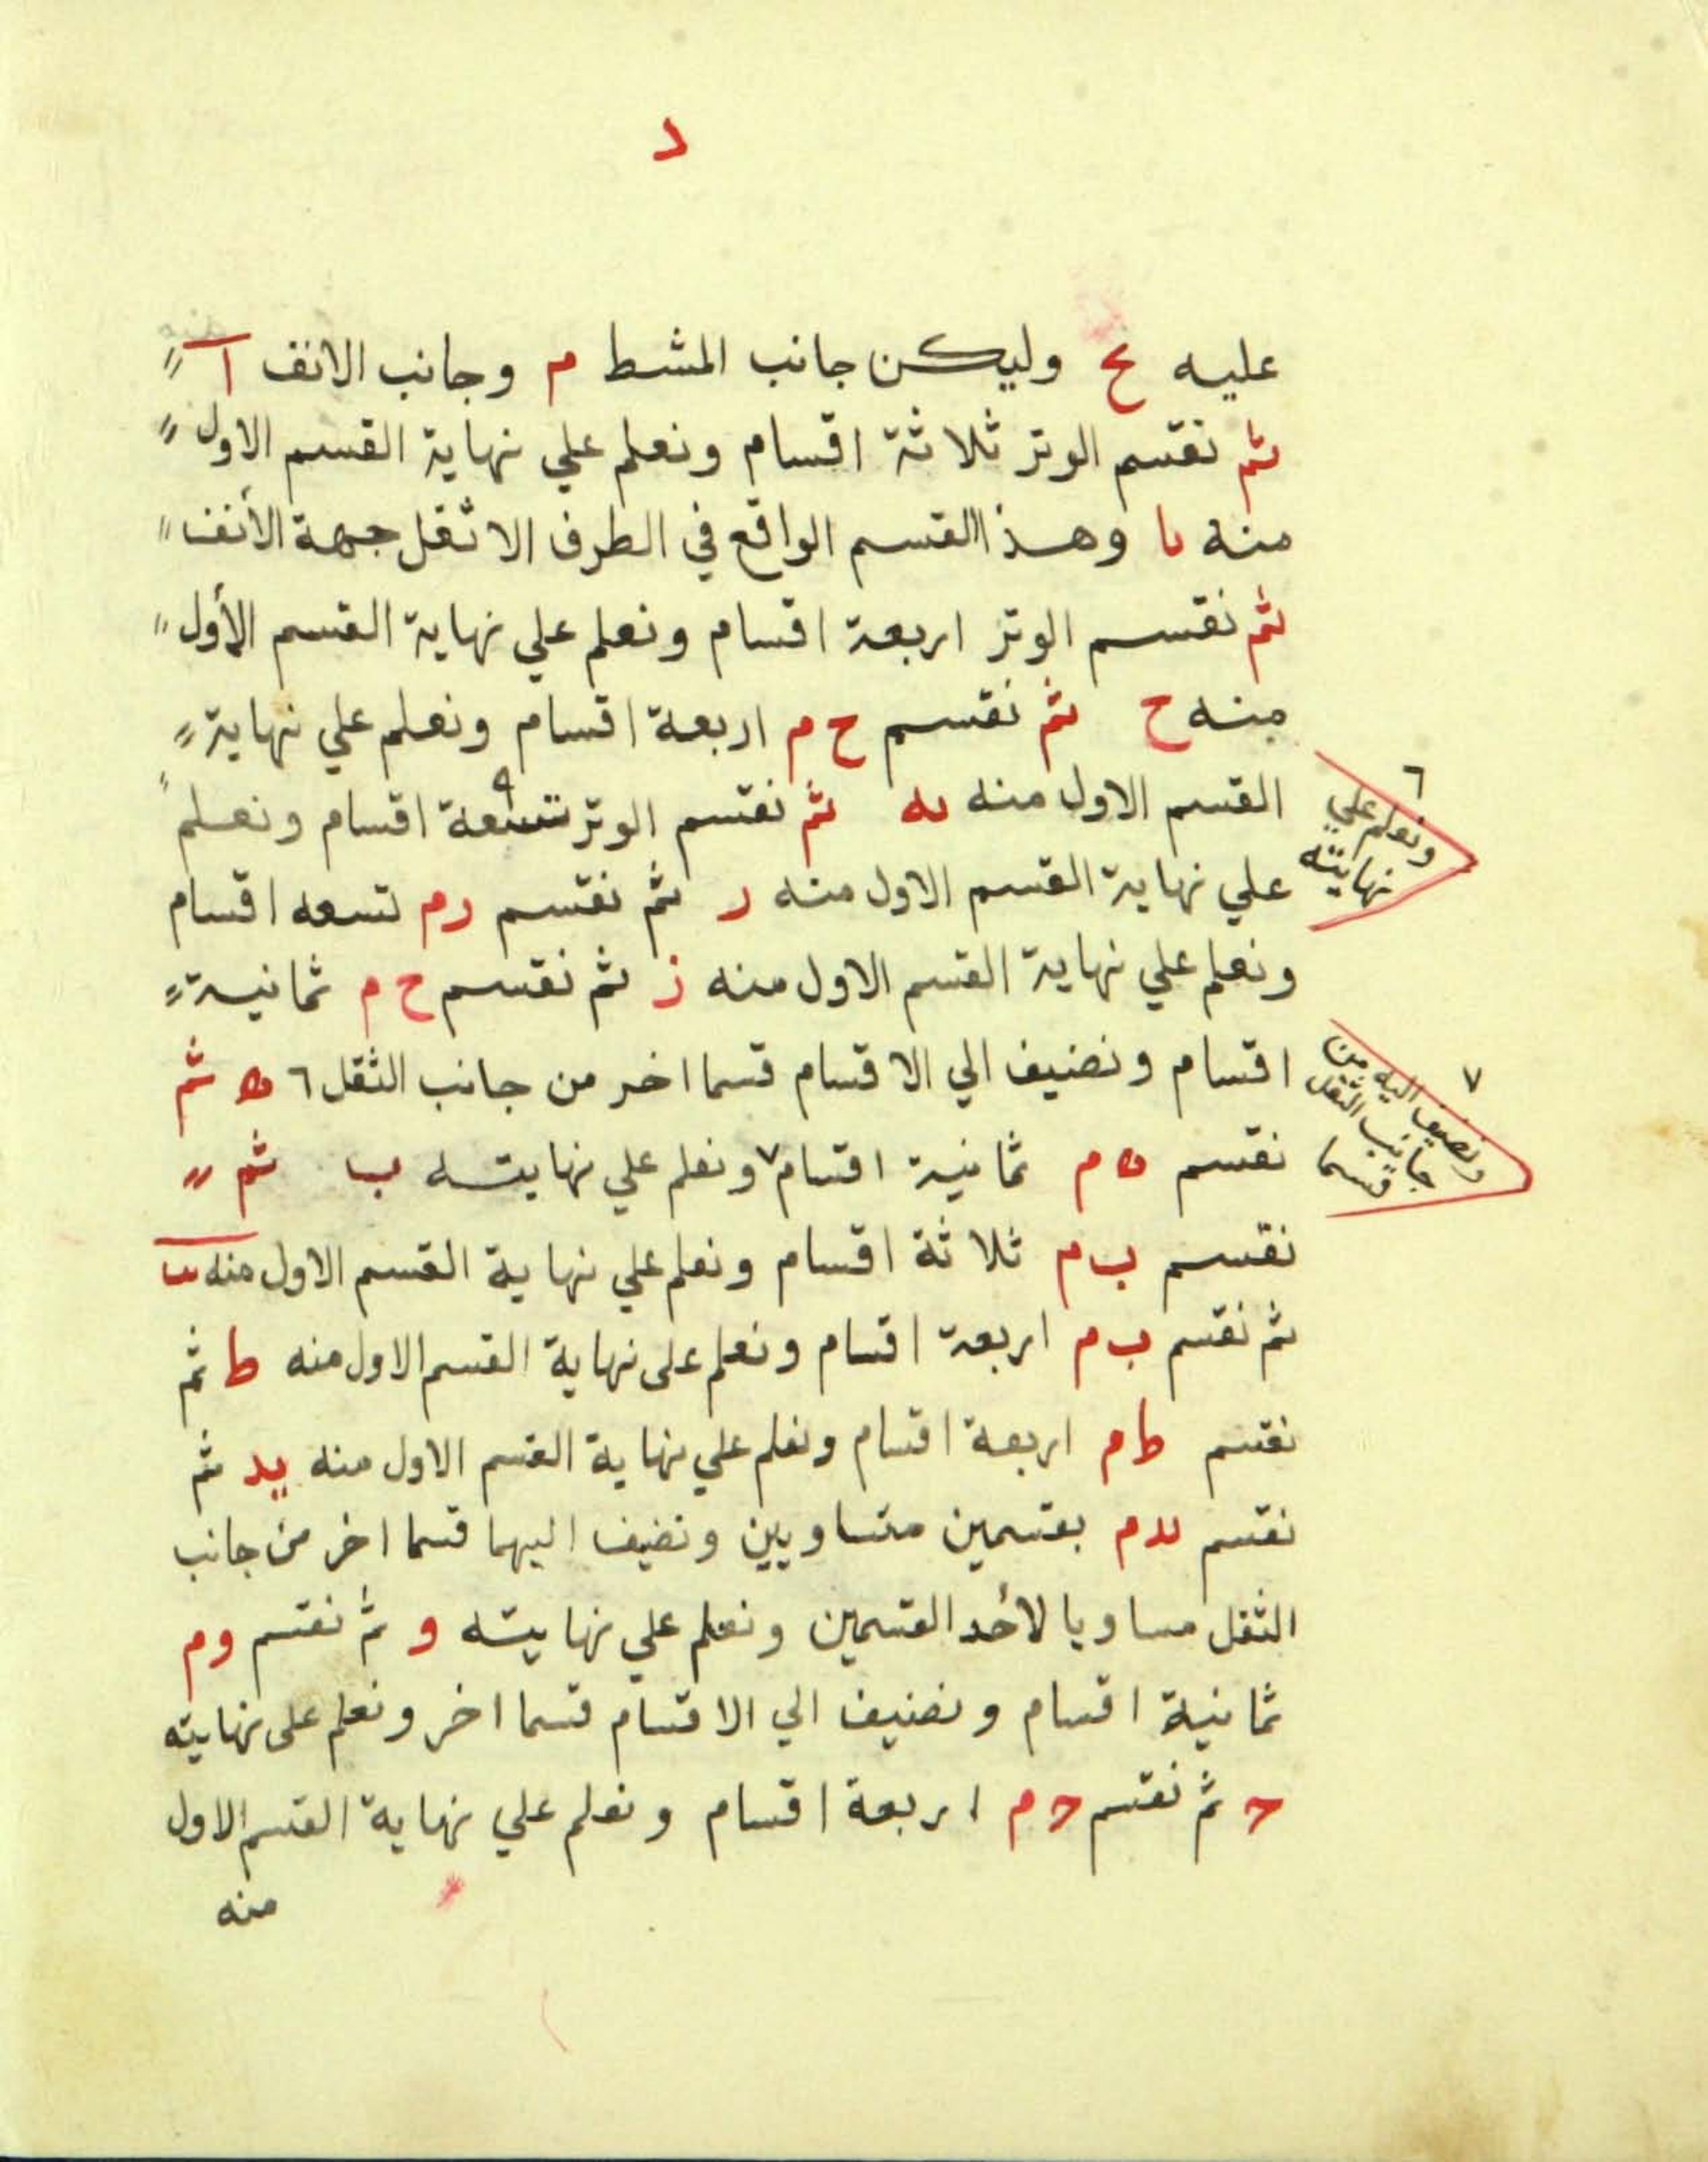 د
عليه ع وليكن جانب المشط م وجانب الانف ا
ثم نقسم الوتر ثلاثة اقسام ونعلم علي نهاية القسم الاول
منه يا وهذا القسم الواقع في الطرف الاثقل جهة الأنف
ثم نقسم الوتر اربعة اقسام ونعلم علي نهاية القسم الأول
منه ح ثم نقسم ح م اربعة اقسام ونعلم علي نهاية
القسم الاول منه يه ثم نقسم الوتر تسعة اقسام ونعلم
علي نهاية القسم الاول منه د ثم نقسم د م تسعه اقسام
ونعلم علي نهاية القسم الاول منه ز ثم نقسم ح م ثمانية
اقسام ونضيف الي الاقسام قسما اخر من جانب الثقل ٦ ه ثم
نقسم ه م ثمانية اقسام ٧ ونعلم علي نهايته ب ثم
نقسم ب م ثلاثة اقسام ونعلم علي نهاية القسم الاول منه
ثم نقسم ب م اربعة اقسام ونعلم على نهاية القسم الاول منه ط ثم
نقسم ط م اربعة اقسام ونعلم علي نهاية القسم الاول منه يد ثم
نقسم يد م بقسمين متساويين ونضيف اليهما قسما اخر من جانب
الثقل مساويا لأحد القسمين ونعلم علي نهايته و ثم نقسم و م
ثمانية اقسام ونضيف الي الاقسام قسما اخر ونعلم على نهايته
ج ثم نقسم ج م اربعة اقسام ونعلم علي نهاية القسم الاول
منه
٦
ونعلم علي
نهايته
٧
ونضيف اليه من
جانب الثقل
قسما